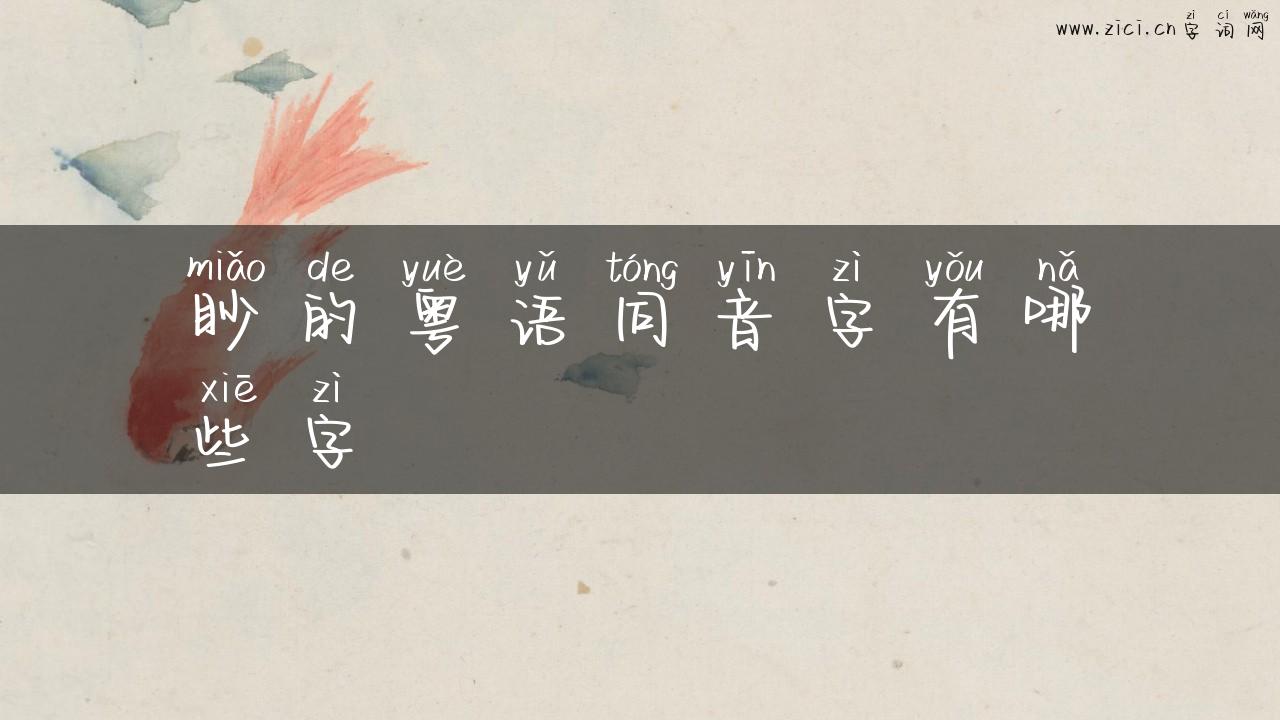 zì cí wǎng
www.zici.cn字词网
miǎo de yuè yǔ tóng yīn zì yǒu nǎ
眇的粤语同音字有哪
xiē zì
些字